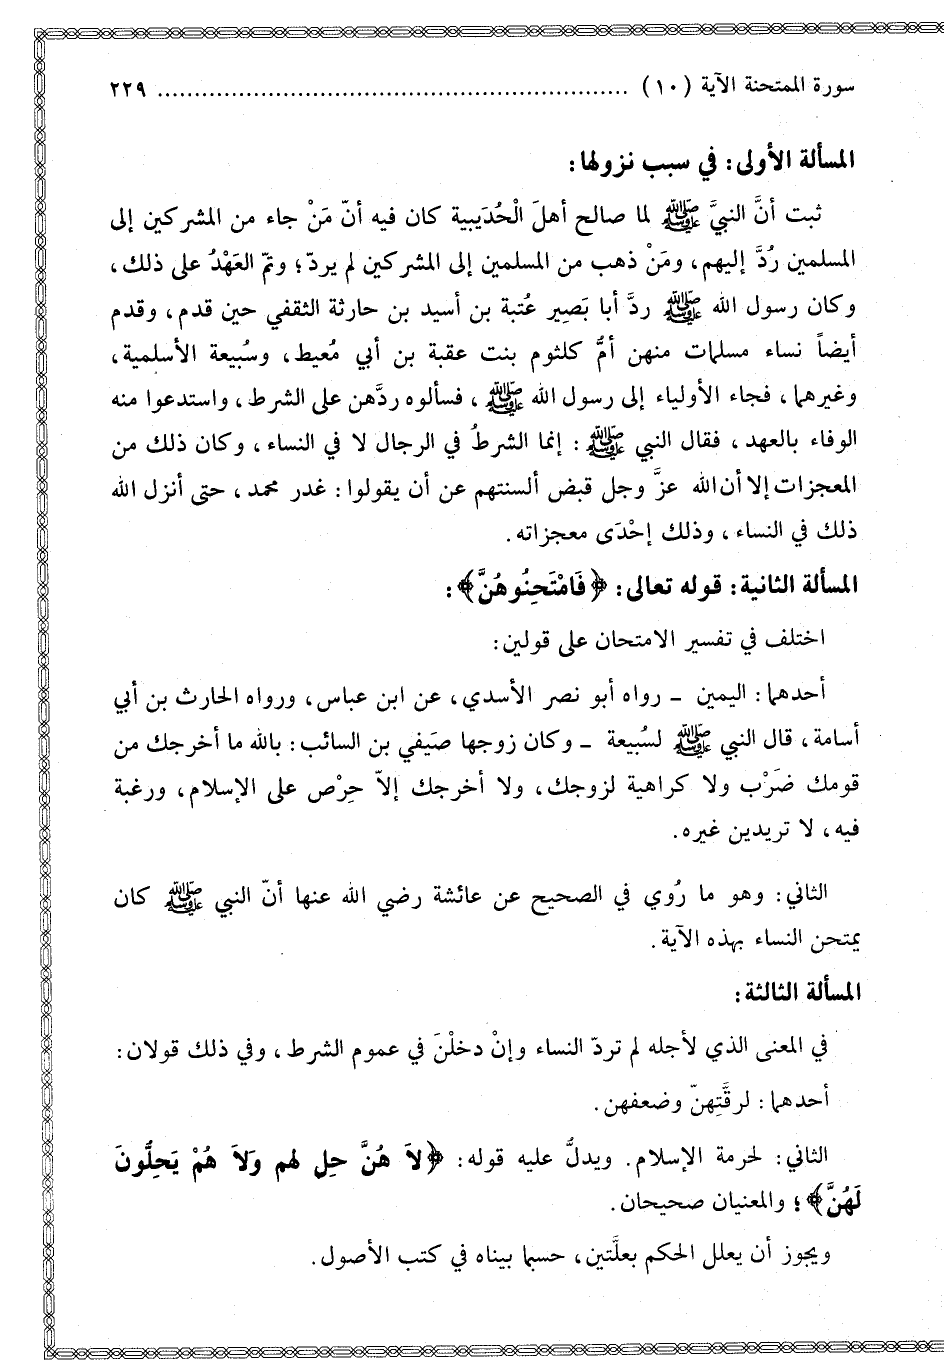 سورة الممتحنة الآية (١٠) ................................................................ ٢٢٩
المسألة الأولى: في سبب نزولها:
ثبت أنَّ النبيَّ ﷺ لما صالح أهلَ الْحُدَيبية كان فيه أنّ مَنْ جاء من المشركين إلى
المسلمين رُدَّ إليهم، ومَنْ ذهب من المسلمين إلى المشركين لم يردّ؛ وتمّ العَهْدُ على ذلك،
وكان رسول الله ﷺ ردَّ أبا بَصِير عُتبة بن أسيد بن حارثة الثقفي حين قدم، وقدم
أيضاً نساء مسلمات منهن أمُّ كلثوم بنت عقبة بن أبي مُعيط، وسُبيعة الأسلمية،
وغيرهما، فجاء الأولياء إلى رسول الله ﷺ، فسألوه ردَّهن على الشرط، واستدعوا منه
الوفاء بالعهد، فقال النبي ﷺ: إنما الشرطُ في الرجال لا في النساء، وكان ذلك من
المعجزات إلا أن الله عزَّ وجل قبض ألسنتهم عن أن يقولوا: غدر محمد، حتى أنزل الله
ذلك في النساء، وذلك إحْدَى معجزاته.
المسألة الثانية: قوله تعالى: ﴿فَامْتَحِنُوهُنَّ﴾:
اختلف في تفسير الامتحان على قولين:
أحدهما: اليمين - رواه أبو نصر الأسدي، عن ابن عباس، ورواه الحارث بن أبي
أسامة، قال النبي ﷺ لسُبيعة - وكان زوجها صَيفي بن السائب: بالله ما أخرجك من
قومك ضَرْب ولا كراهية لزوجك، ولا أخرجك إلاّ حِرْص على الإسلام، ورغبة
فيه، لا تريدين غيره.
الثاني: وهو ما رُوي في الصحيح عن عائشة رضي الله عنها أنّ النبي ﷺ كان
يمتحن النساء بهذه الآية.
المسألة الثالثة:
في المعنى الذي لأجله لم تردّ النساء وإنْ دخلْنَ في عموم الشرط، وفي ذلك قولان:
أحدهما: لرقَّتِهنّ وضعفهن.
الثاني: لحرمة الإسلام. ويدلُّ عليه قوله: ﴿لاَ هُنَّ حِل لهم وَلاَ هُمْ يَحِلُّونَ
لَهُنَّ﴾؛ والمعنيان صحيحان.
ويجوز أن يعلل الحكم بعلَّتين، حسبما بيناه في كتب الأصول.